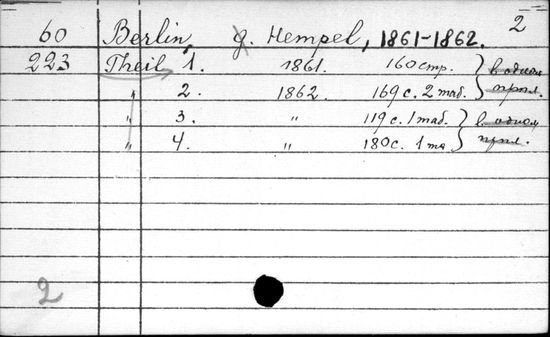 2
60 Berlin, G. Hempel, 1861-1862.
223 Theil 1. 1861. 160 стр. } в одном
" 2. 1862. 169 с. 2 таб. } прпл.
" 3. " 119 с. 1 таб. } в одном
" 4. " 180 с. 1 та } прпл.
2